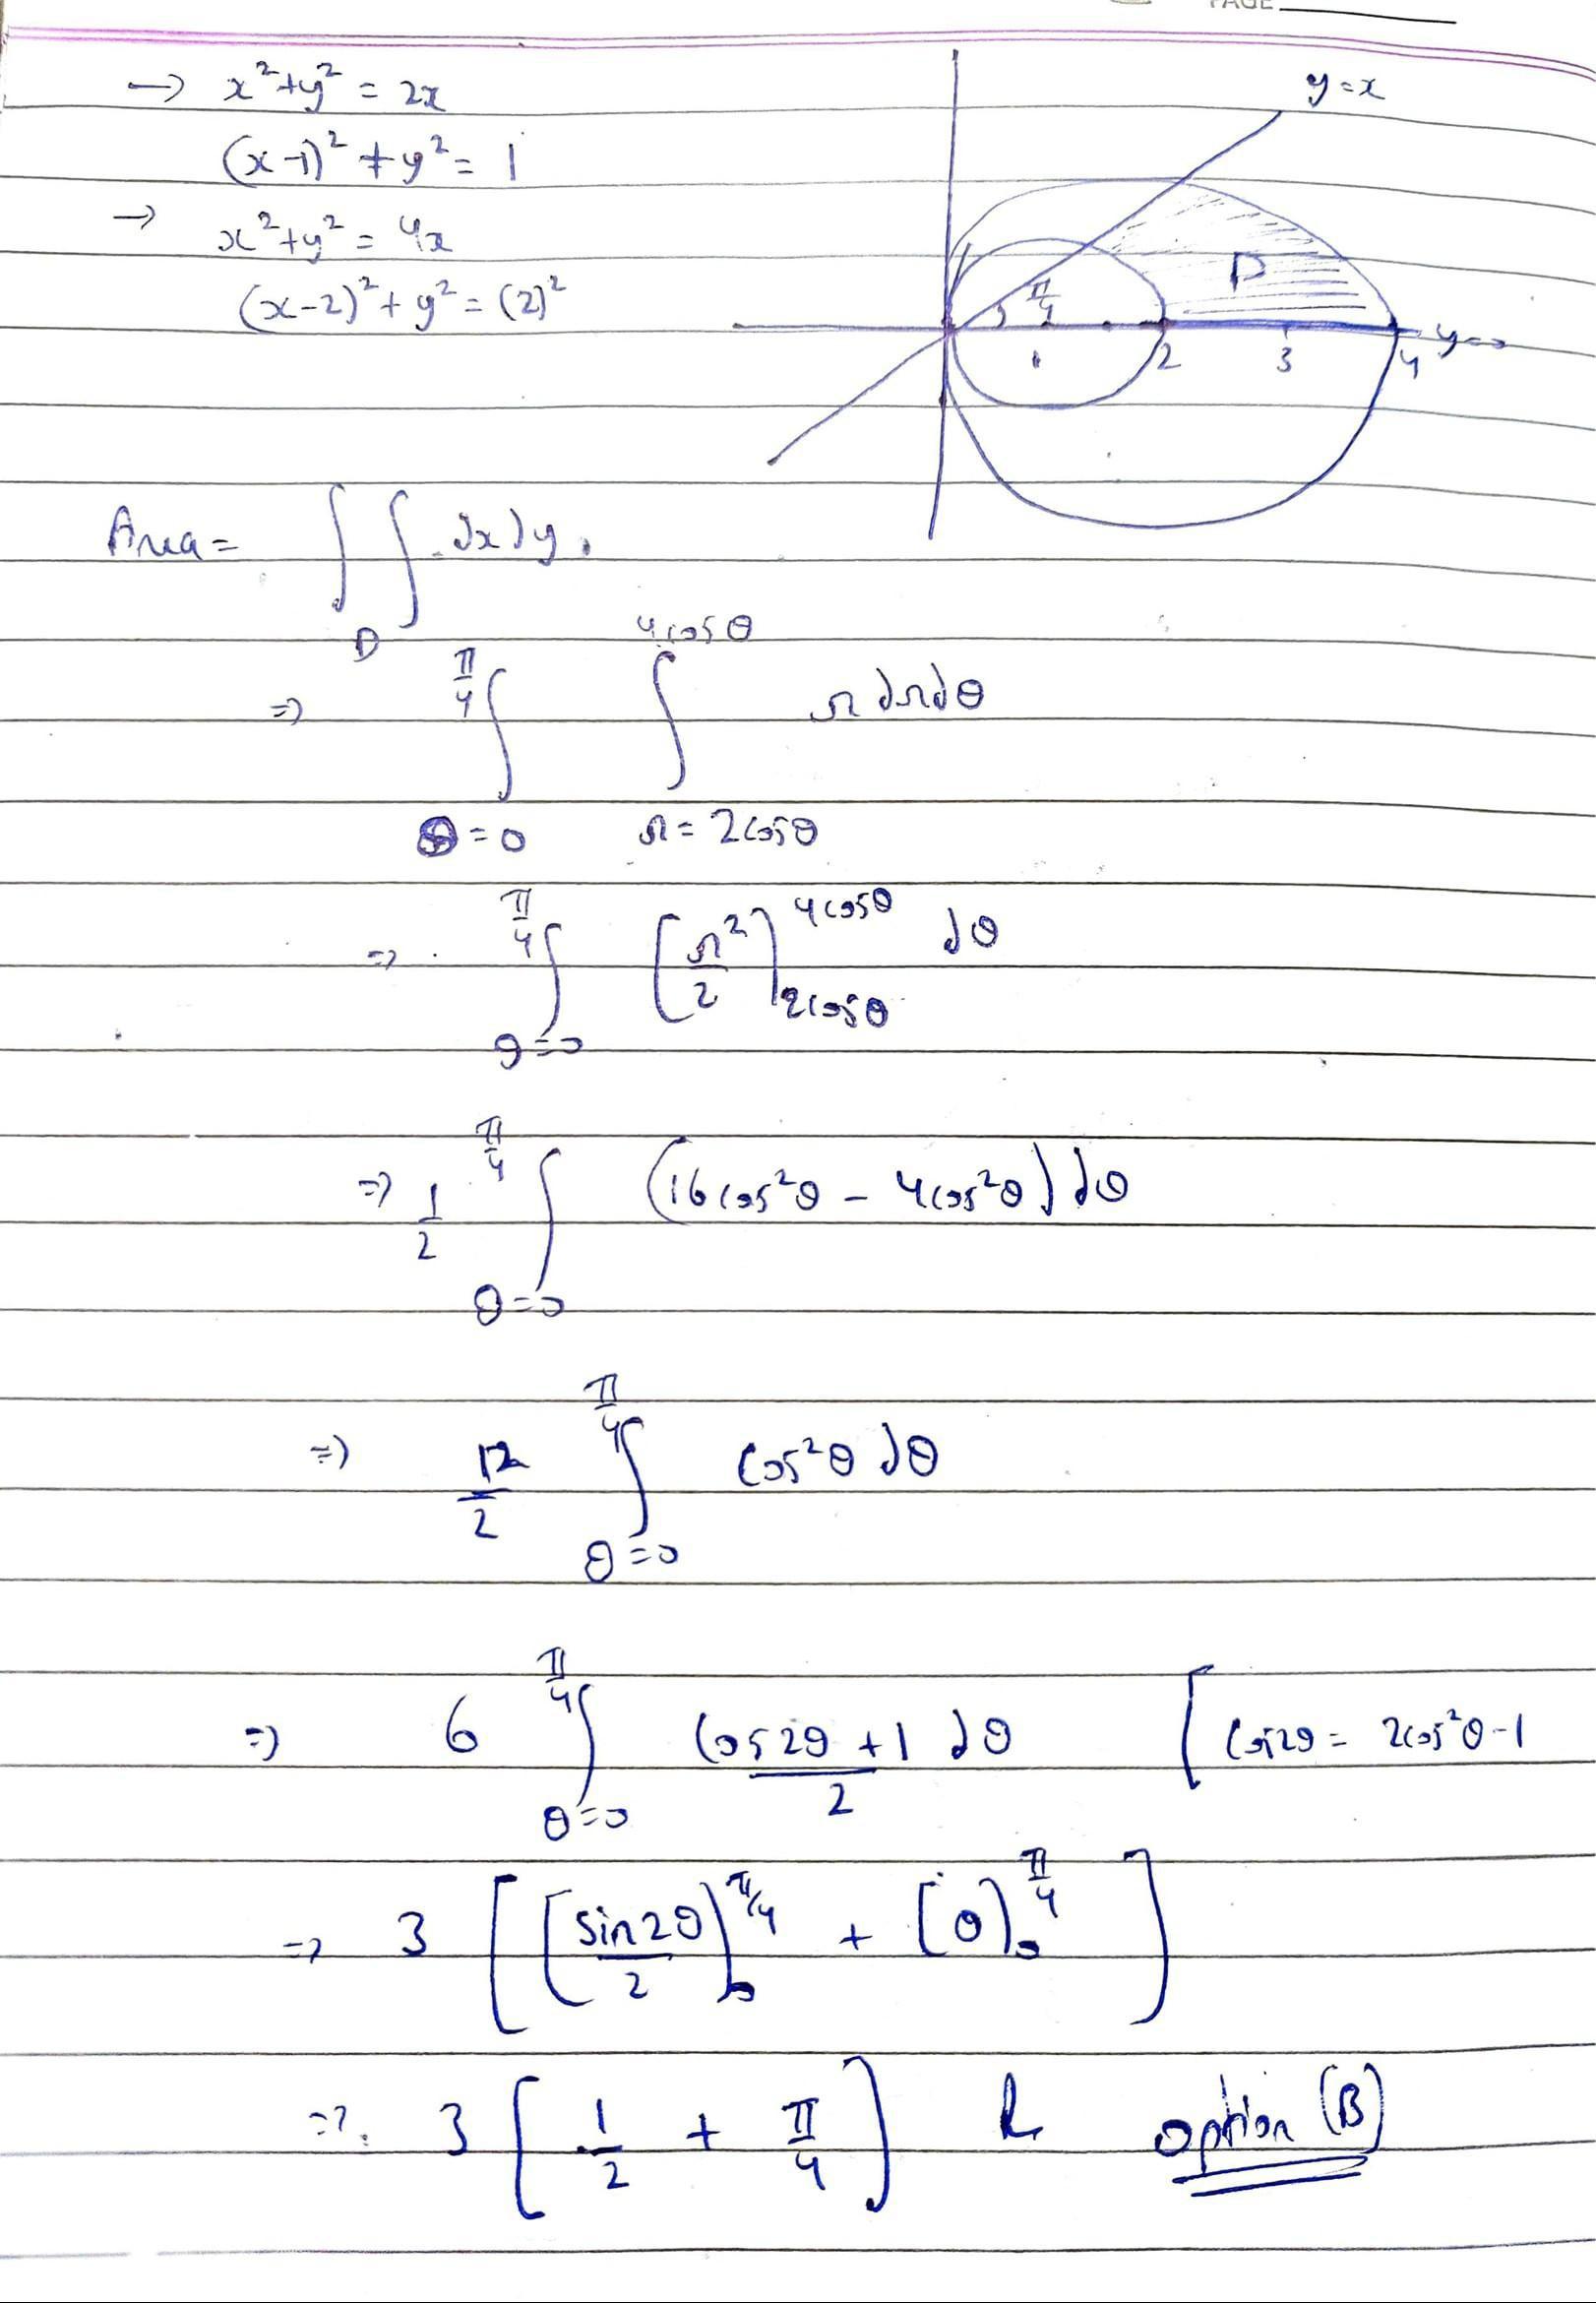 PAGE
→ x²+y² = 2x
(x-1)² + y² = 1
→ x²+y² = 4x
(x-2)² + y² = (2)²
y=x
D
π/4
1 2 3 4 y=0
Area = ∫∫ dx dy.
D
⇒ ∫_{θ=0}^{π/4} ∫_{r=2cosθ}^{4cosθ} r dr dθ
⇒ ∫_{θ=0}^{π/4} [r²/2]_{2cosθ}^{4cosθ} dθ
⇒ 1/2 ∫_{θ=0}^{π/4} (16cos²θ - 4cos²θ) dθ
⇒ 12/2 ∫_{θ=0}^{π/4} cos²θ dθ
⇒ 6 ∫_{θ=0}^{π/4} (cos2θ + 1)/2 dθ [cos2θ = 2cos²θ-1
⇒ 3 [ [sin2θ/2]_0^{π/4} + [θ]_0^{π/4} ]
⇒ 3 [ 1/2 + π/4 ] option (B)